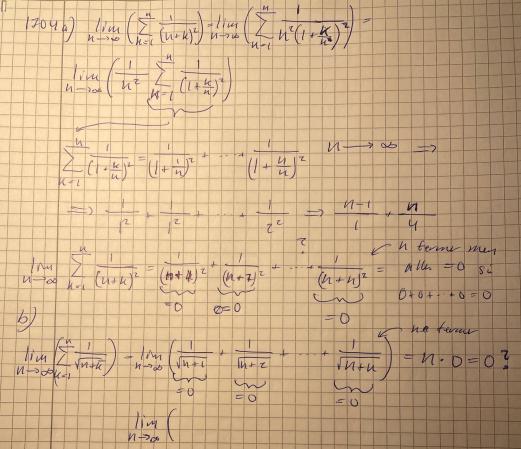 1704a) lim n→∞ (∑ k=1 n 1/(n+k)²) = lim n→∞ (∑ k=1 n 1/n²(1+k/n)²) =
lim n→∞ (1/n² ∑ k=1 n 1/(1+k/n)²)
∑ k=1 n 1/(1+k/n)² = 1/(1+1/n)² + ... + 1/(1+n/n)² n → ∞ ⟹
⟹ 1/1² + 1/1² + ... + 1/2² ⟹ n-1/1 + n/4
?
n termer men
lim n→∞ ∑ k=1 n 1/(n+k)² = 1/(n+1)² + 1/(n+2)² + ... + 1/(n+n)² = alla =0 så
=0 =0 =0 0+0+...+0=0
b)
lim n→∞ (∑ k=1 n 1/√n+k) = lim n→∞ (1/√n+1 + 1/√n+2 + ... + 1/√n+n) = n·0=0?
=0 =0 =0
lim n→∞ (